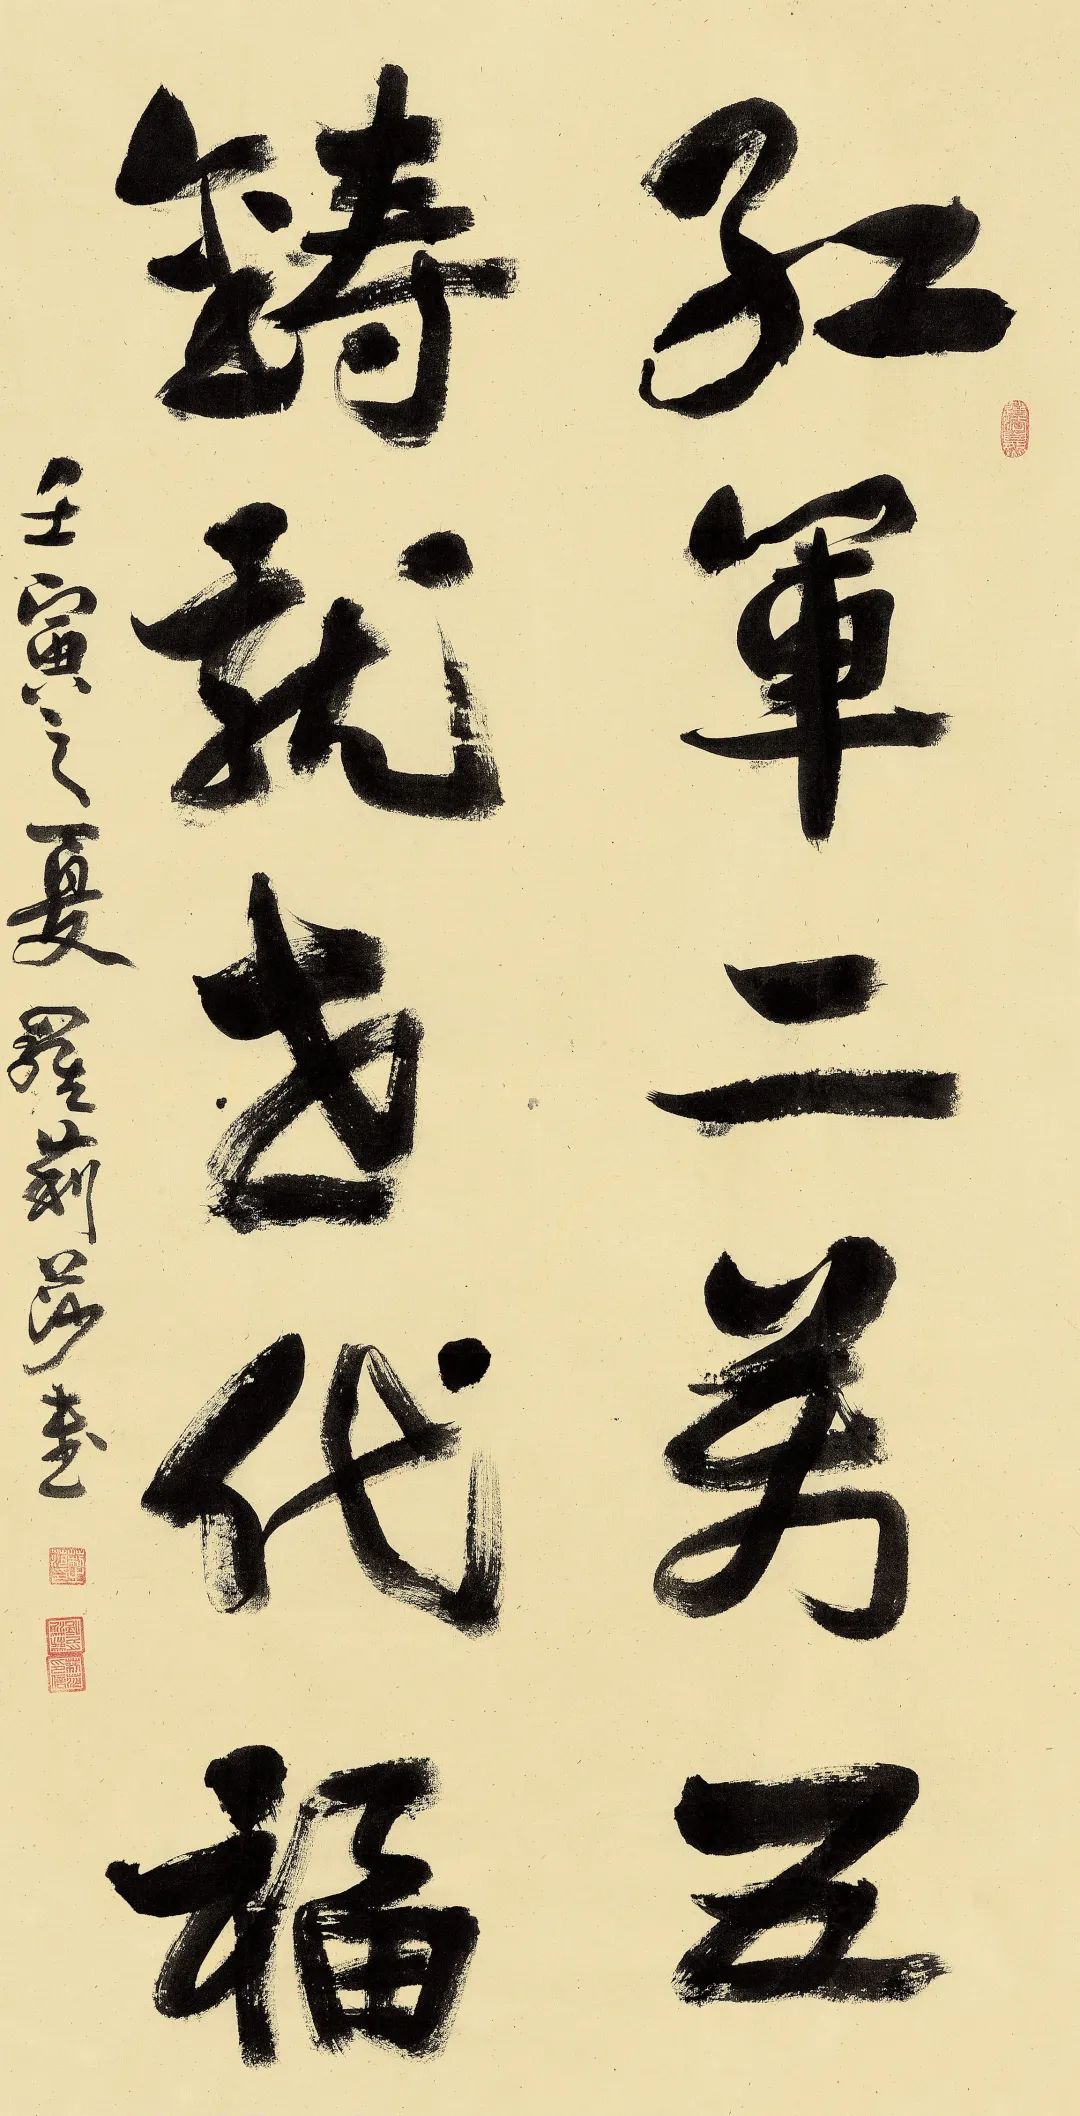 红軍二萬五
鑄就世代福
壬寅之夏 羅莉莎書